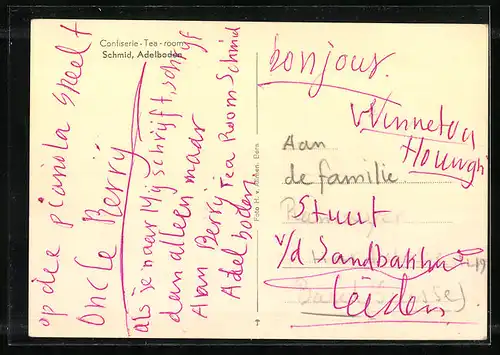 Confiserie - Tea - room
Schmid, Adelboden
op die pianola speelt
Oncle Berry
als je naar mij schrijft, schrijf
dan alleen maar
Aan Berry Tea Room Schmid
Adelboden
bonjour.
Winnetou
Aan
de familie
Stuut
v/d Sandbakhu
Leiden